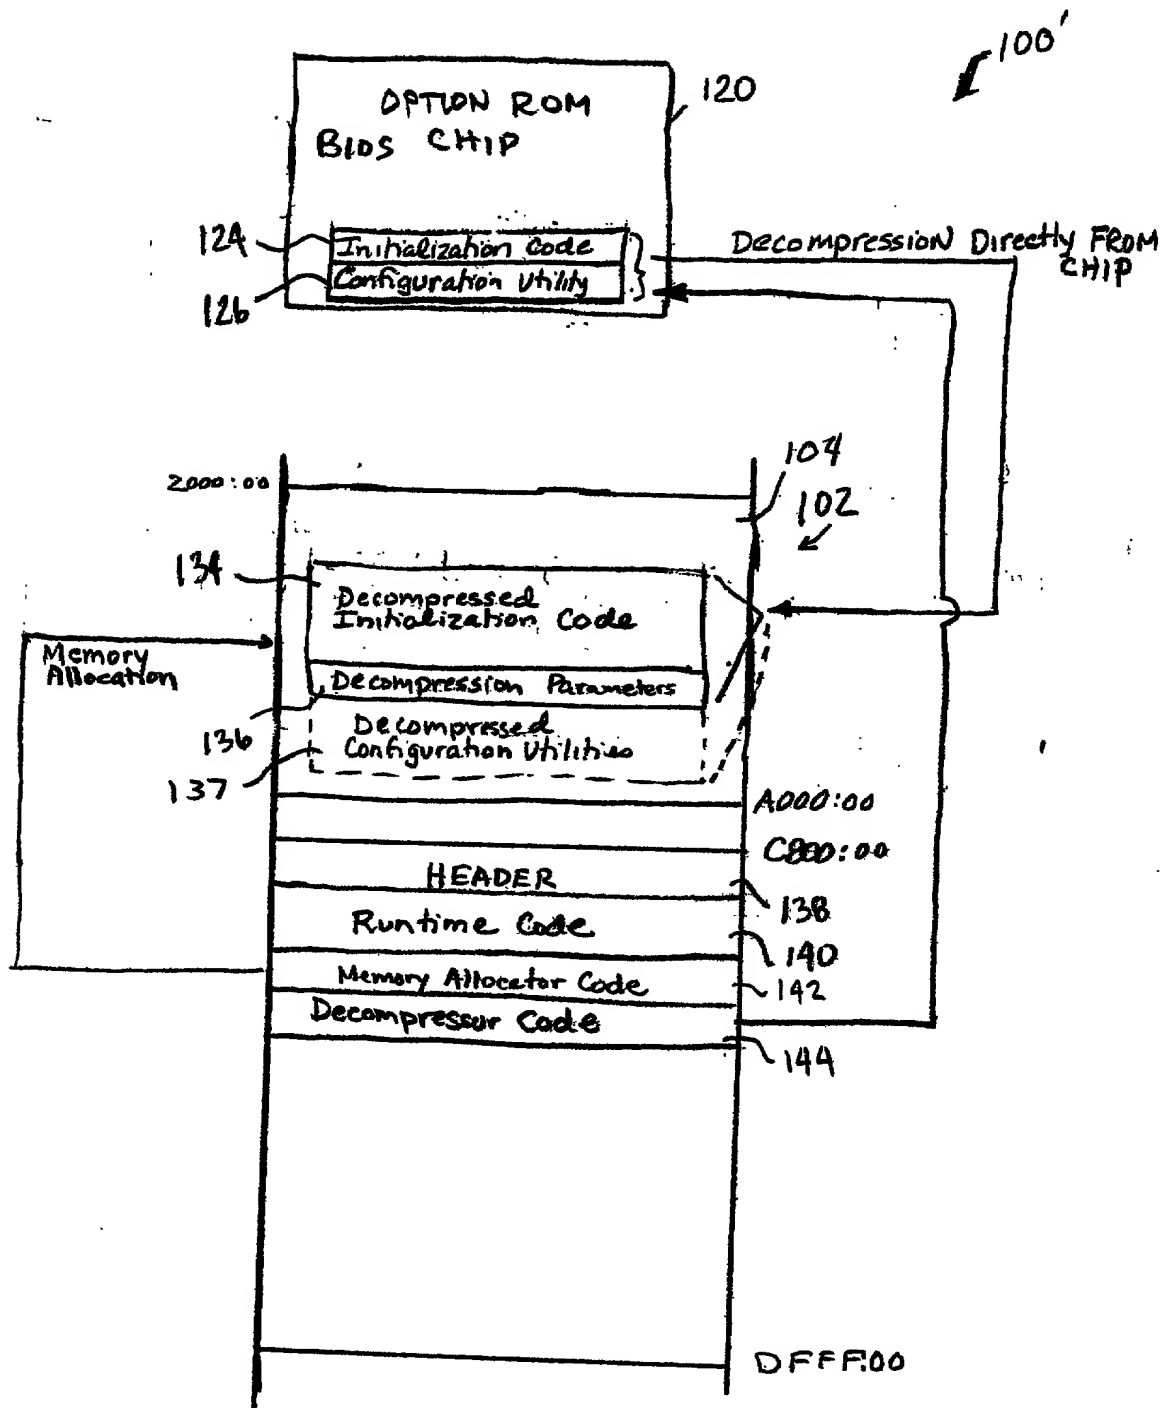 100'
OPTION ROM
BIOS CHIP
120
124
Initialization Code
Configuration Utility
126
Decompression Directly FROM
CHIP
2000:00
104
102
134
Decompressed
Initialization Code
Memory
Allocation
Decompression Parameters
136
Decompressed
Configuration Utilities
137
A000:00
C800:00
HEADER
138
Runtime Code
140
Memory Allocator Code
142
Decompressor Code
144
DFFF:00